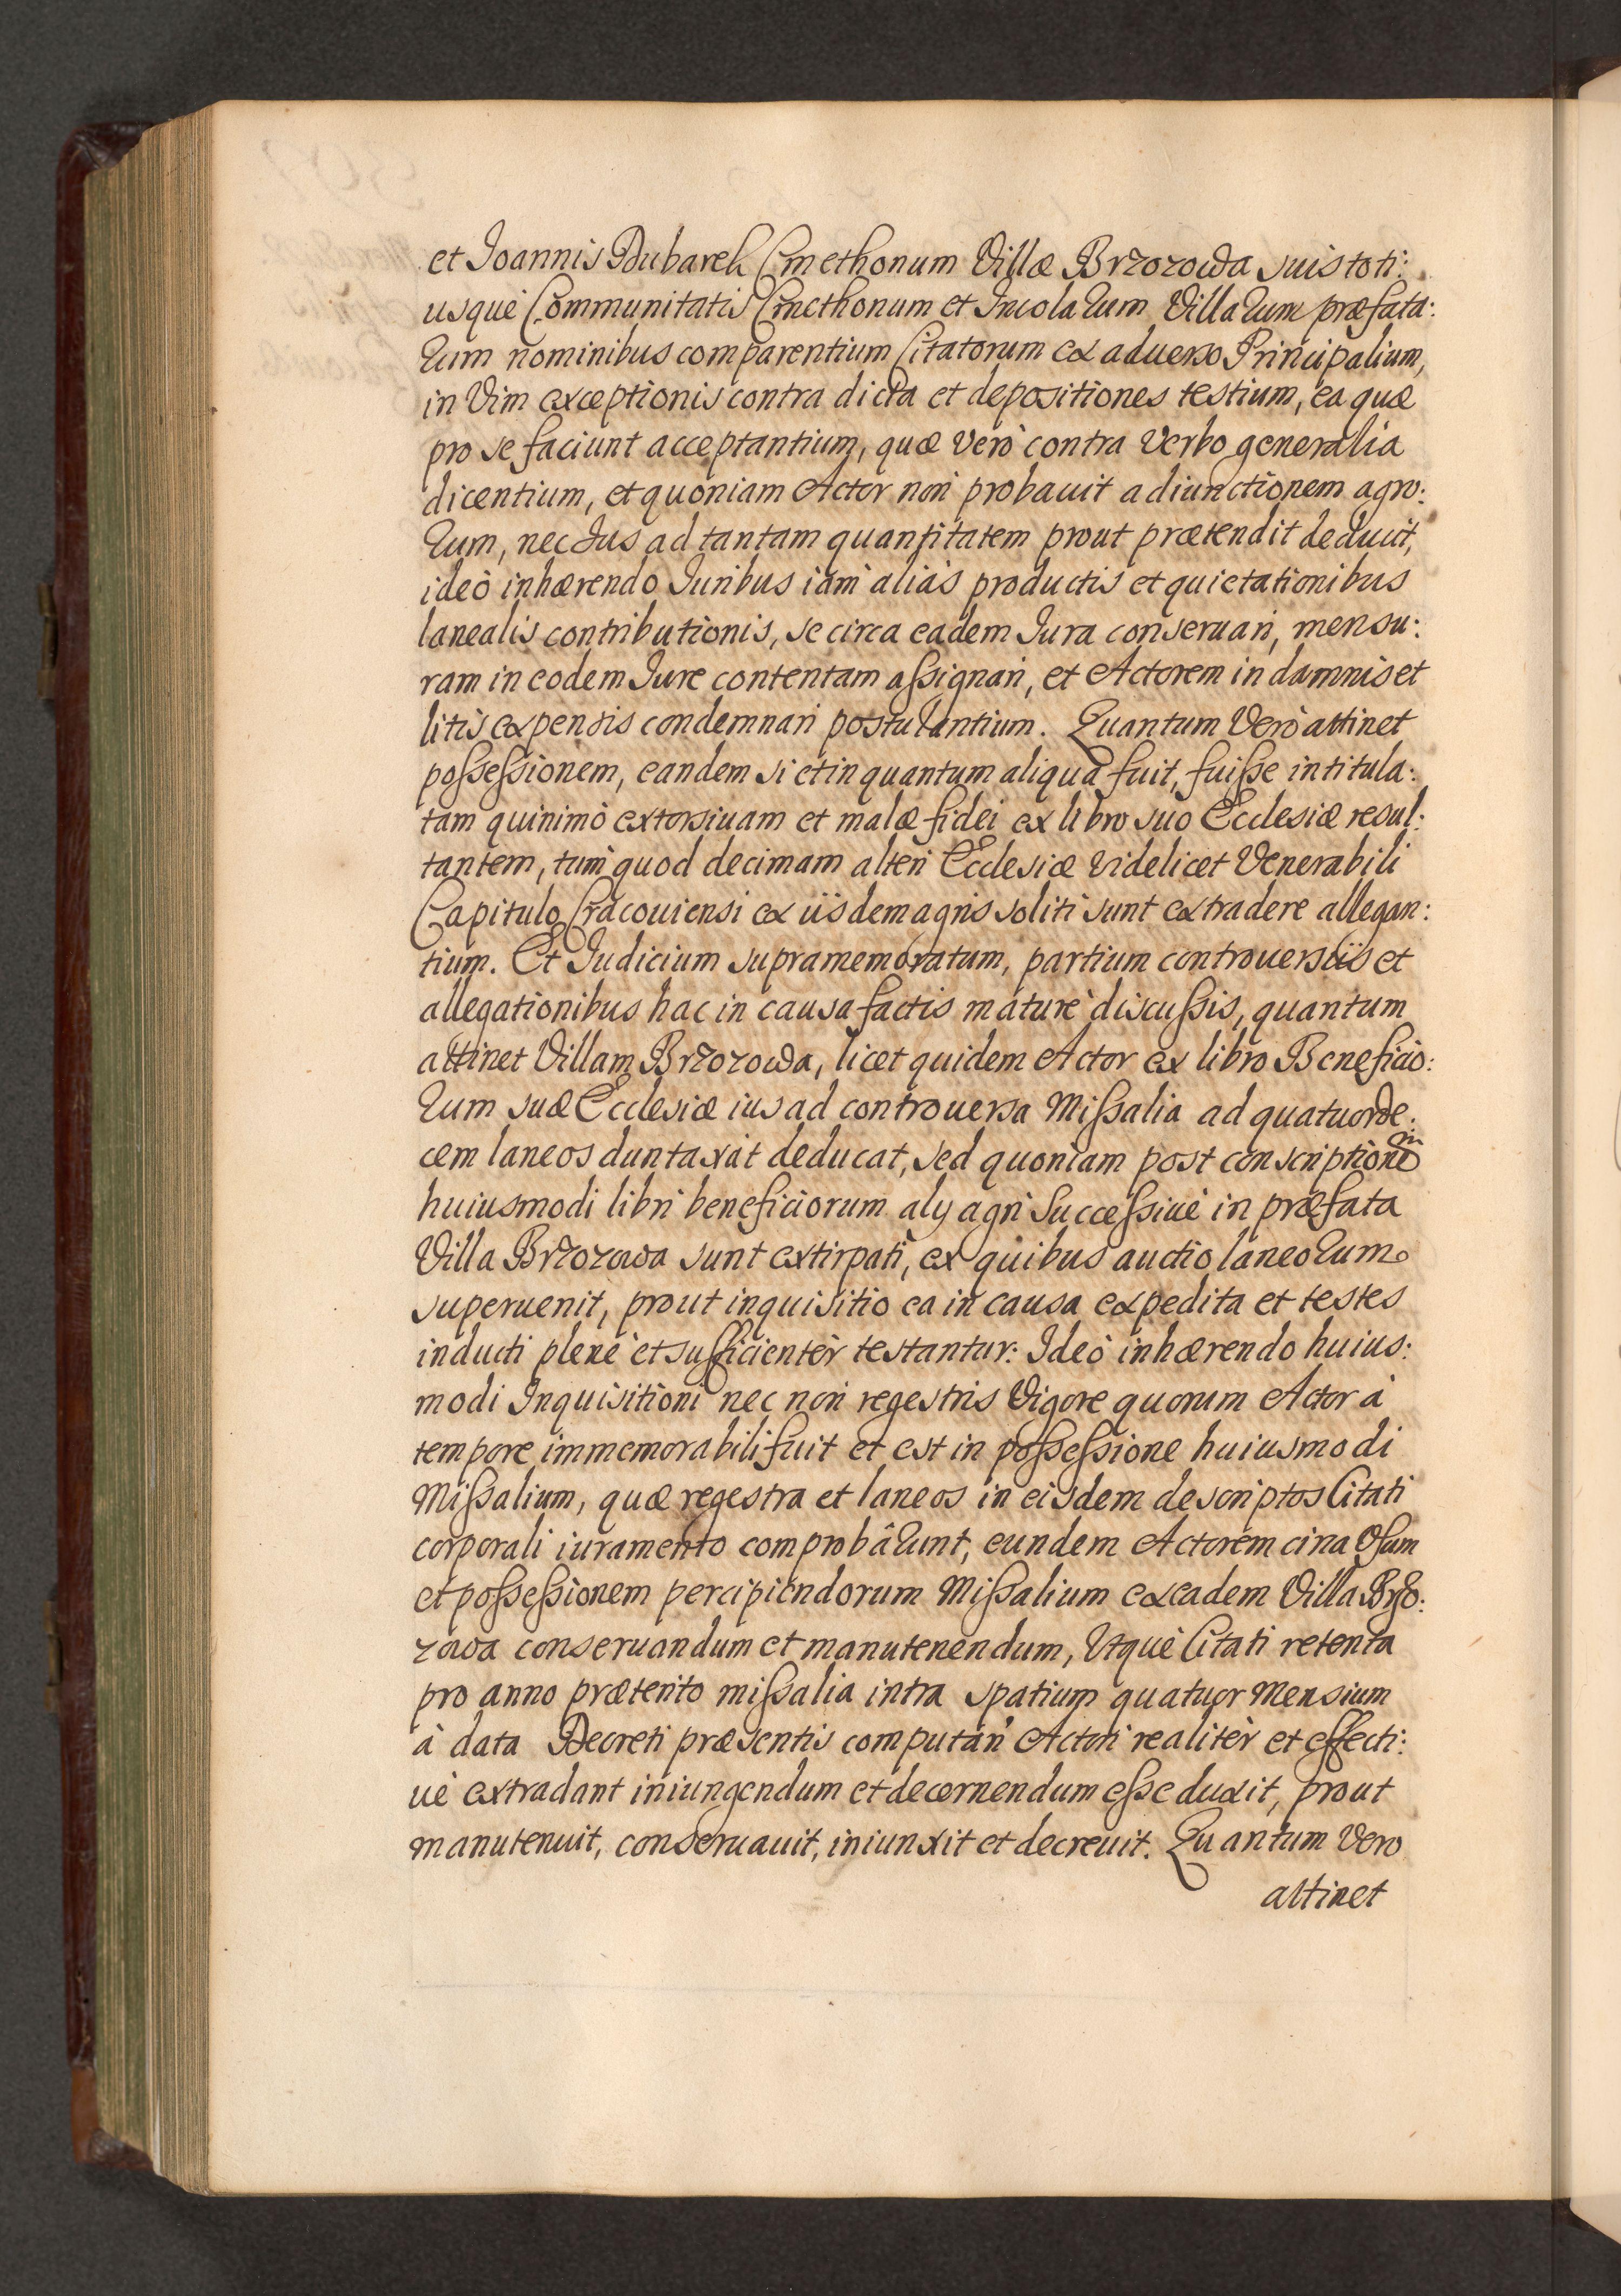 et Joannis Dubarek Cmethonum Villæ Brzozowa suis toti:
usquè Communitatis Cmethonum et Incolarum Villarum præfata:
rum nominibus comparentium Citatorum ex aduerso Principalium,
in Vim exceptionis contra dicta et depositiones testium, ea quæ
pro se faciunt acceptantium, quæ verò contra Verbo generalia
dicentium, et quoniam Actor non probauit adiunctionem agro:
rum, nec Jus ad tantam quantitatem prout prætendit deducit,
ideò inhærendo Juribus iam aliàs productis et quietationibus
lanealis contributionis, se circa eadem Jura conseruari, mensu:
ram in eodem Jure contentam aßignari, et Actorem in damnis et
litis expensis condemnari postulantium. Quantum Verò attinet
poßeßionem, eandem si et in quantum aliqua fuit, fuiße intitula:
tam quinimò extorsiuam et malæ fidei ex libro suo Ecclesiæ resul:
tantem, tum quod decimam alteri Ecclesiæ videlicet Venerabili
Capitulo Cracouiensi ex iisdem agris soliti sunt extradere allegan:
tium. Et Judicium supramemoratum, partium controuersiis et
allegationibus hac in causa factis maturè discußis, quantum
attinet Villam Brzozowa, licet quidem Actor ex libro Beneficio:
rum suæ Ecclesiæ ius ad controuersa Mißalia ad quatuorde:
cem laneos duntaxàt deducat, sed quoniam post conscriptionem
huiusmodi libri beneficiorum alÿ agri succeßiuè in præfata
Villa Brzozowa sunt extirpati, ex quibus auctio laneorum
superuenit, prout inquisitio ea in causa expedita et testes
inducti plenè et sufficientèr testantur: Ideò inhærendo huius:
modi Inquisitioni nec non regestris Vigore quorum Actor à
tempore immemorabili fuit et est in poßeßione huiusmodi
Mißalium, quæ regestra et laneos in eisdem descriptos Citati
corporali iuramento comprobârunt, eundem Actorem circa Vsum
et poßeßionem percipiendorum Mißalium ex eadem Villa Brzo:
zowa conseruandum et manutenendum, Vtquè Citati retenta
pro anno præterito mißalia intra spatium quatuor Mensium
à data Decreti præsentis computan' Actori realitèr et effecti:
uè extradant iniungendum et decernendum eße duxit, prout
manutenuit, conseruauit, iniunxit et decreuit. Quantum Vero
attinet